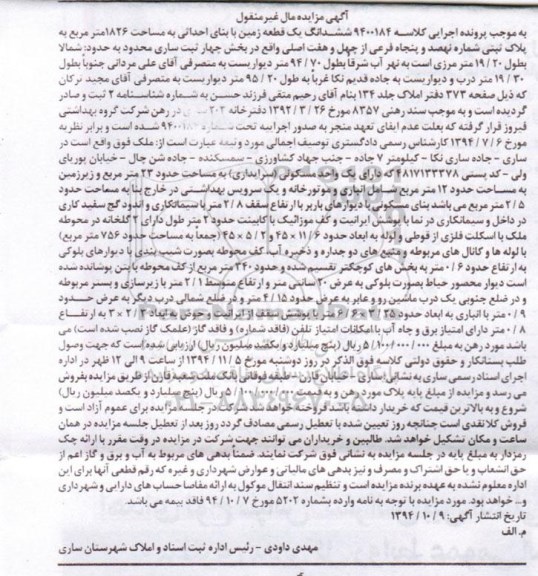 آگهی مزایده مال غیرمنقول
به موجب پرونده اجرایی کلاسه ۹۴۰۰۱۸۴ ششدانگ یک قطعه زمین با بنای احداثی به مساحت ۱۸۲۶متر مربع به
پلاک ثبتی شماره نهصد و پنجاه فرعی از چهل و هفت اصلی واقع در بخش چهار ثبت ساری محدود به حدود: شمالا
بطول ۲۰ / ۱۹ متر مرزی است به نهر آب شرقا بطول ۷۰ / ۹۴ متر دیواریست به متصرفی آقای علی مردانی جنوبا بطول
۳۰ / ۱۹ متر درب و دیواریست به جاده قدیم نکا غربا به طول ۲۰ / ۹۵ متر دیواریست به متصرفی آقای مجید ترکان
که ذیل صفحه ۳۷۳ دفتر املاک جلد ۱۳۴ بنام آقای رحیم متقی فرزند حسین به شماره شناسنامه ۲ ثبت و صادر
گردیده است و به موجب سند رهنی ۸۳۵۷ مورخ ۲۶ / ۳ / ۱۳۹۲ دفترخانه ۲۰۳ در رهن شرکت گروه بهداشتی
فیروز قرار گرفته که بعلت عدم ایفای تعهد منجر به صدور اجراییه تحت شماره شده است و برابر نظریه
مورخ ۶ / ۷ / ۱۳۹۴ کارشناس رسمی دادگستری توصیف اجمالی مورد وثیقه عبارت است از: ملک فوق واقع است در
ساری - جاده ساری نکا - کیلومتر ۷ جاده - جنب جهاد کشاورزی - سمسکنده - جاده شن چال - خیابان پوریای
ولی - کد پستی ۴۸۱۷۱۳۳۳۷۸ که دارای یک واحد مسکونی (سرایداری) به مساحت حدود ۲۳ متر مربع و زیرزمین
به مساحت حدود ۱۲ متر مربع شامل انباری و موتورخانه و یک سرویس بهداشتی در خارج بنا به مساحت حدود
۵ / ۲ متر مربع می باشد بنای مسکونی با دیوارهای باربر با ارتفاع سقف ۸ / ۲ متر با سیمانکاری و اندود گچ سفید کاری
در داخل و سیمانکاری در نما با پوشش ایرانیت و کف موزائیک با کابینت حدود ۲ متر طول دارای ۲ گلخانه در محوطه
ملک با اسکلت فلزی از قوطی و لوله به ابعاد حدود ۶ / ۱۱ × ۴۵ و ۲ / ۵ × ۴۵ (جمعا به مساحت حدود ۷۵۶ متر مربع)
با لوله ها و کانال های مربوطه و منبع های دو جداره و ذخیره آب، کف محوطه بصورت شیب بندی با دیوارهای بلوکی
به ارتفاع حدود ۶ / ۰ متر به بخش های کوچکتر تقسیم شده و حدود ۲۴۰ متر مربع از کف محوطه با بتن پوشانده شده
است دیوار محصور حیاط بصورت بلوکی به عرض ۲۰ سانتی متر و ارتفاع متوسط ۱ / ۲ متر با زیرسازی و بستر مربوطه
و در ضلع جنوبی یک درب ماشین رو و عابر به عرض حدود ۱۵ / ۴ متر و در ضلع شمالی درب دیگر به عرض حدود
۹ / ۰ متر با انباری به ابعاد حدود ۲۵ / ۲ × ۶ / ۲ متر با پوشش سقف از ایرانیت حوض به ابعاد ۲ × ۳ به ارتفاع
۸ / ۰ متر دارای امتیاز برق و چاه آب با امکانات امتیاز تلفن (فاقد شماره) و فاقد گاز (علمک گاز نصب شده است) می
باشد مورد رهن به مبلغ ۰۰۰ / ۰۰۰ / ۱۰۰ / ۵ ریال (پنج میلیارد و یکصد میلیون ریال) ارزیابی شده است که جهت وصول
طلب بستانکار و حقوق دولتی کلاسه فوق الذکر در روز دوشنبه مورخ ۵ / ۱۱ / ۱۳۹۴ از ساعت ۹ الی ۱۲ ظهر در اداره
اجرای اسناد رسمی ساری به نشانی ساری - خیابان قارن - طبقه فوقانی بانک ملت شعبه قارن از طریق مزایده بفروش
می رسد و مزایده از مبلغ پایه پلاک مورد رهن و به قیمت ریال (پنج میلیارد و یکصد میلیون ریال)
شروع و به بالاترین قیمت که خریدار داشته باشد فروخته خواهد شد شرکت در جلسه مزایده برای عموم آزاد است و
فروش کلا نقدی است چنانچه روز تعیین شده با تعطیل رسمی مصادف گردد روز بعد از تعطیل جلسه مزایده در همان
ساعت و مکان تشکیل خواهد شد. طالبین و خریداران می توانند جهت شرکت در مزایده در وقت مقرر با ارائه چک
رمزدار به مبلغ پایه در جلسه مزایده به نشانی فوق شرکت نمایند. ضمناً بدهی های مربوط به آب و برق و گاز اعم از
حق انشعاب و یا حق اشتراک و مصرف و نیز بدهی های مالیاتی و عوارض شهرداری و غیره که رقم قطعی آنها برای این
اداره معلوم نشده به عهده برنده مزایده است و تنظیم سند انتقال موکول به ارائه مفاصا حساب های دارایی و شهرداری
و... خواهد بود. مورد مزایده با توجه به نامه وارده بشماره ۵۲۰۲ مورخ ۷ / ۱۰ / ۹۴ فاقد بیمه می باشد.
تاریخ انتشار آگهی: ۹ / ۱۰ / ۱۳۹۴
م. الف
مهدی داودی - رئیس اداره ثبت اسناد و املاک شهرستان ساری